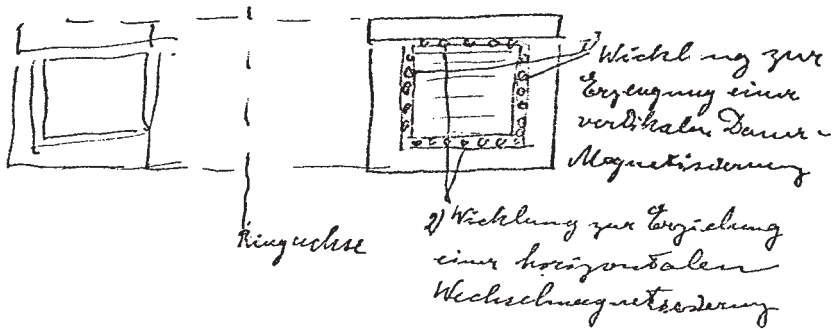 1) Wicklung zur
Erzeugung einer
vertikalen Dauer-
Magnetisierung
Ringachse
2) Wicklung zur Erziehung
einer horizontalen
Wechselmagnetisierung